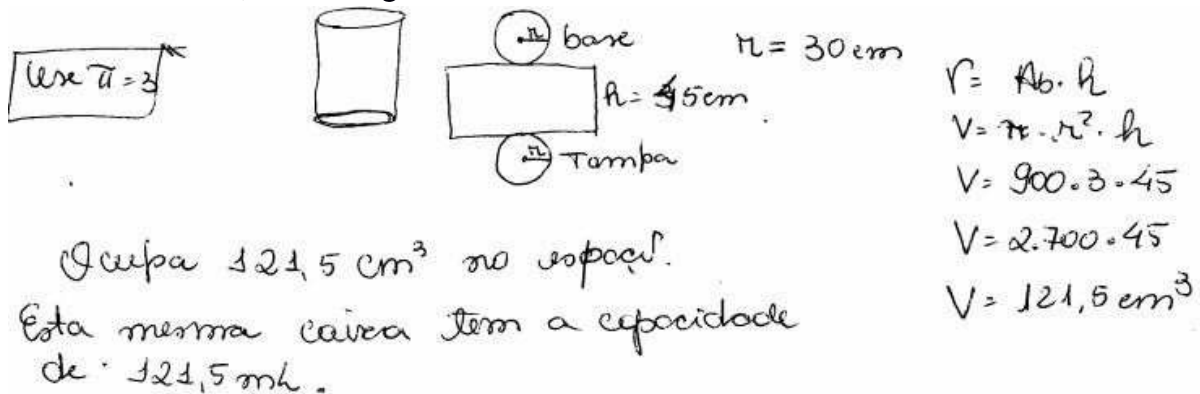 Use π = 3
r
base
r = 30 cm
h = 45 cm
r
Tampa
V = Ab. h
V = π . r². h
V = 900.3.45
V = 2.700.45
V = 121,5 cm³
Ocupa 121,5 cm³ no espaço.
Esta mesma caixa tem a capacidade
de 121,5 mL.